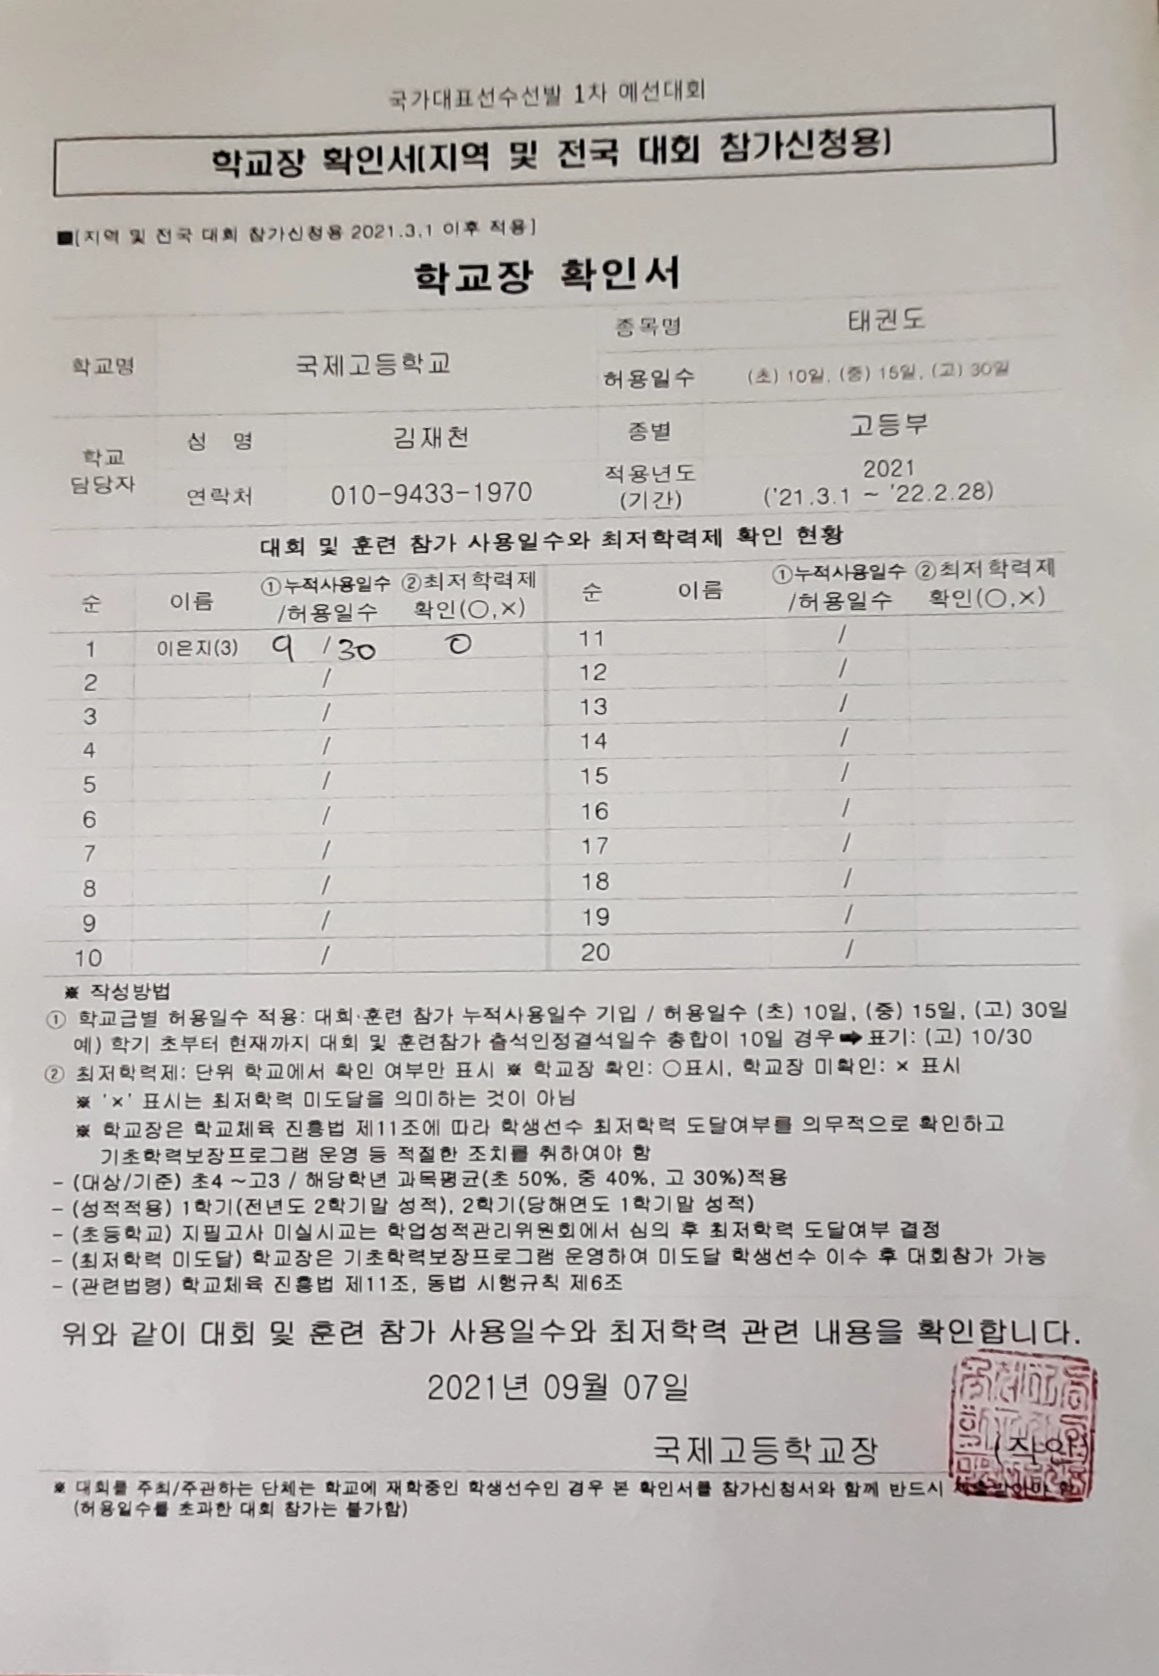 국가대표선수선발 1차 예선대회
학교장 확인서[지역 및 전국 대회 참가신청용]
■[지역 및 전국 대회 참가신청용 2021.3.1 이후 적용]
학교장 확인서
학교명 국제고등학교 종목명 태권도
허용일수 (초) 10일, (중) 15일, (고) 30일
학교 담당자 성 명 김재천 종별 고등부
연락처 010-9433-1970 적용년도 (기간) 2021 ('21.3.1 ~ '22.2.28)
대회 및 훈련 참가 사용일수와 최저학력제 확인 현황
순 이름 ①누적사용일수 /허용일수 ②최저학력제 확인(○,×) 순 이름 ①누적사용일수 /허용일수 ②최저학력제 확인(○,×)
1 이은지(3) 9 / 30 0 11 /
2 / 12 /
3 / 13 /
4 / 14 /
5 / 15 /
6 / 16 /
7 / 17 /
8 / 18 /
9 / 19 /
10 / 20 /
※ 작성방법
① 학교급별 허용일수 적용: 대회·훈련 참가 누적사용일수 기입 / 허용일수 (초) 10일, (중) 15일, (고) 30일
예) 학기 초부터 현재까지 대회 및 훈련참가 출석인정결석일수 총합이 10일 경우➡표기: (고) 10/30
② 최저학력제: 단위 학교에서 확인 여부만 표시 ※ 학교장 확인: ○표시, 학교장 미확인: × 표시
※ '×' 표시는 최저학력 미도달을 의미하는 것이 아님
※ 학교장은 학교체육 진흥법 제11조에 따라 학생선수 최저학력 도달여부를 의무적으로 확인하고
기초학력보장프로그램 운영 등 적절한 조치를 취하여야 함
- (대상/기준) 초4 ~고3 / 해당학년 과목평균(초 50%, 중 40%, 고 30%)적용
- (성적적용) 1학기(전년도 2학기말 성적), 2학기(당해연도 1학기말 성적)
- (초등학교) 지필고사 미실시교는 학업성적관리위원회에서 심의 후 최저학력 도달여부 결정
- (최저학력 미도달) 학교장은 기초학력보장프로그램 운영하여 미도달 학생선수 이수 후 대회참가 가능
- (관련법령) 학교체육 진흥법 제11조, 동법 시행규칙 제6조
위와 같이 대회 및 훈련 참가 사용일수와 최저학력 관련 내용을 확인합니다.
2021년 09월 07일
국제고등학교장 (직인)
※ 대회를 주최/주관하는 단체는 학교에 재학중인 학생선수인 경우 본 확인서를 참가신청서와 함께 반드시
(허용일수를 초과한 대회 참가는 불가함)